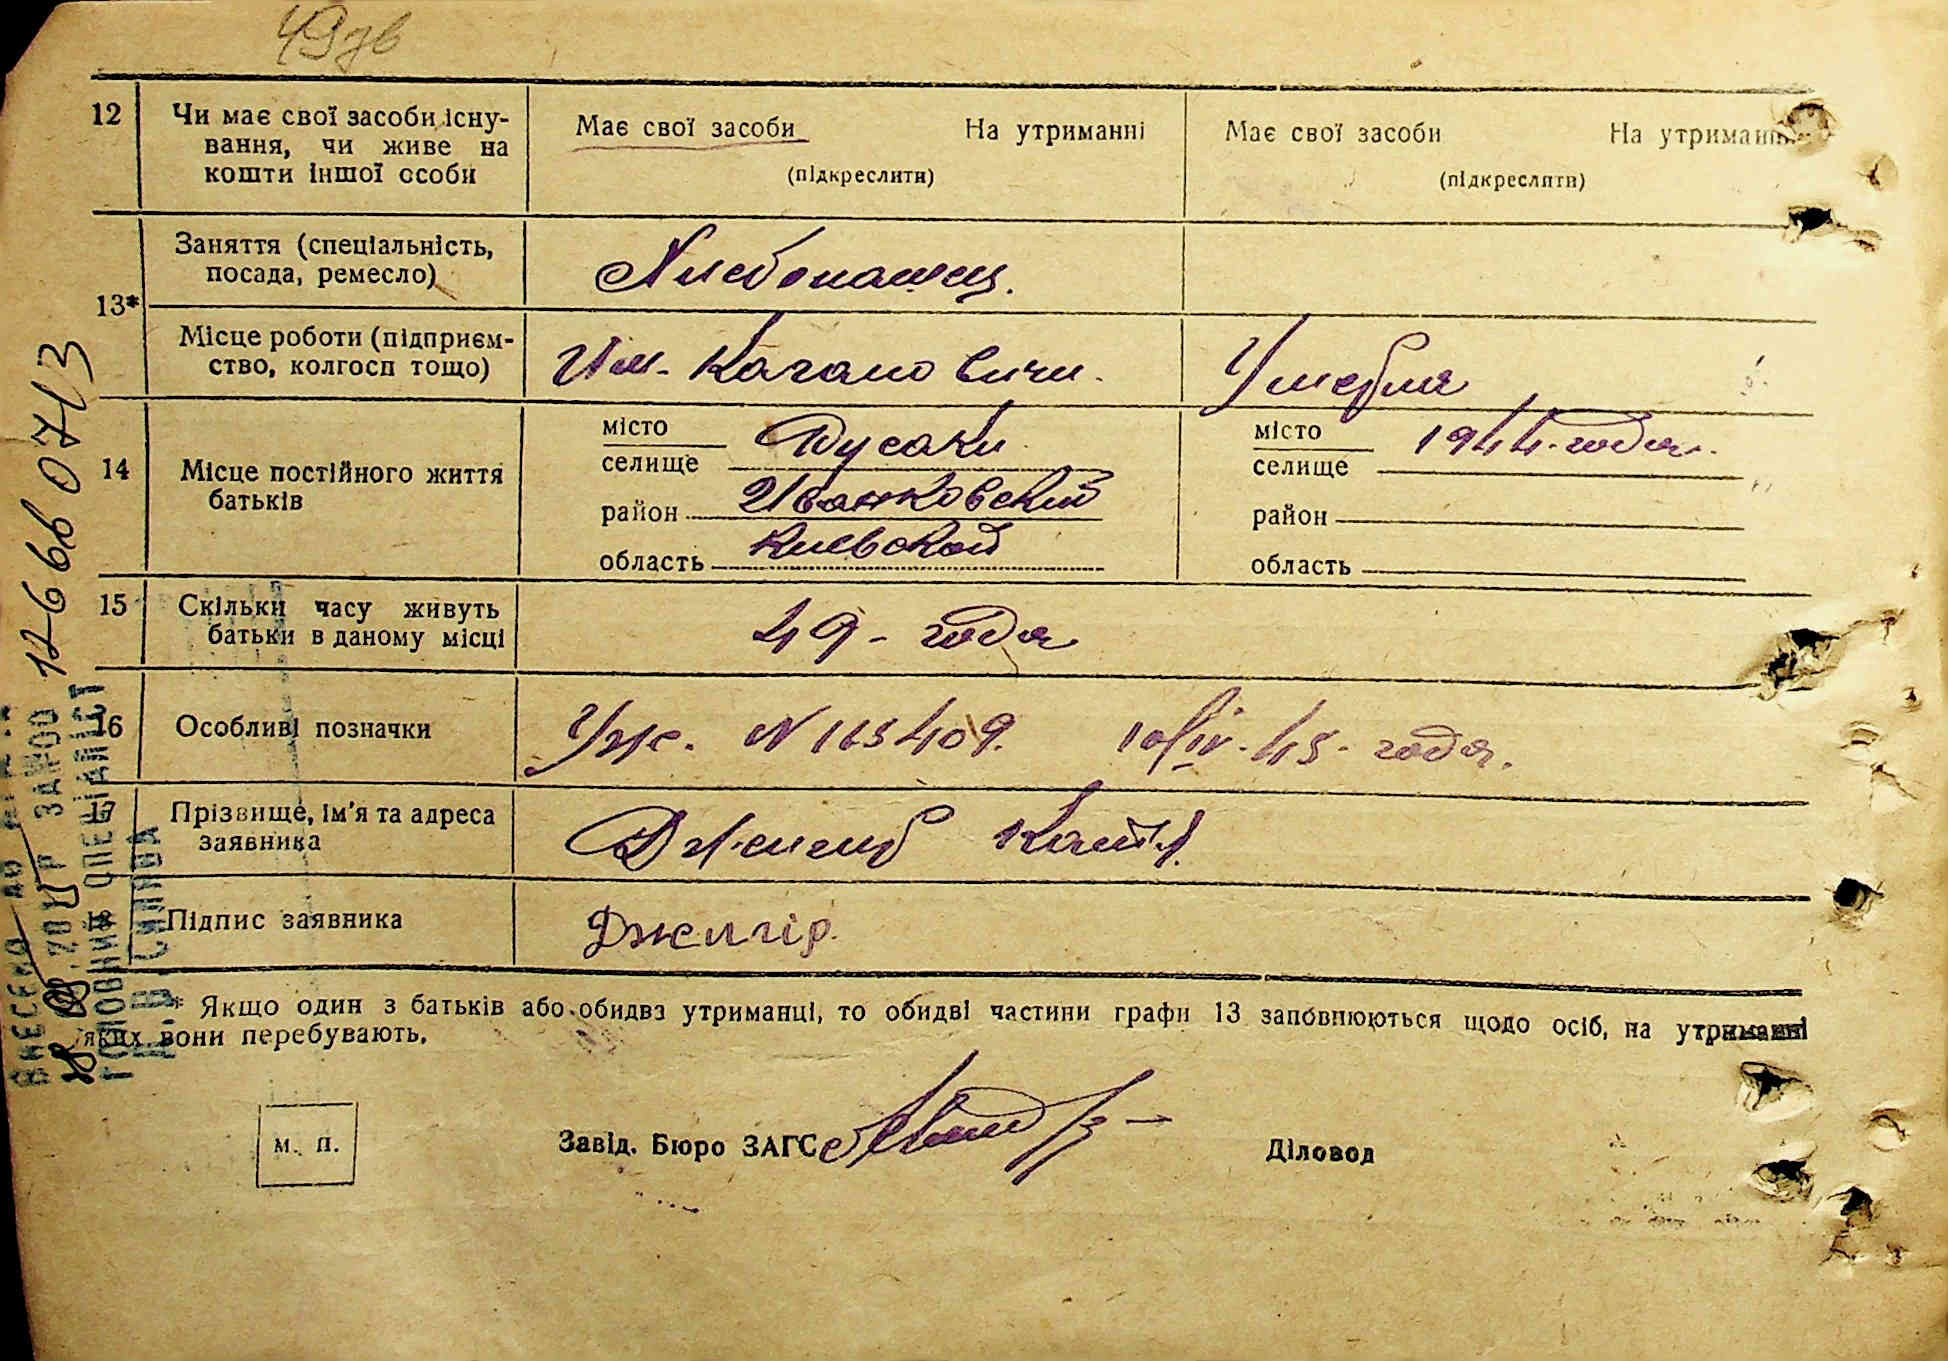 49зв
12 Чи має свої засоби існу- Має свої засоби На утриманні Має свої засоби На утриманні
вання, чи живе на (підкреслити) (підкреслити)
кошти іншої особи
13* Заняття (спеціальність, Хлебопашец.
посада, ремесло)
Місце роботи (підприєм- Им. Кагановичи. Умерла
ство, колгосп тощо)
14 Місце постійного життя місто Дусаки місто 1944 года.
батьків селище селище
район Иванковский район
область Киевской область
15 Скільки часу живуть 49 - года
батьки в даному місці
16 Особливі позначки N 165409. 10/IV-45 года.
17 Прізвище, ім'я та адреса
заявника
Підпис заявника Джелгір.
* Якщо один з батьків або обидва утриманці, то обидві частини графи 13 заповнюються щодо осіб, на утриманні
яких вони перебувають.
м. п. Завід. Бюро ЗАГС Діловод
1266 07/3
ВНЕСЕНО ДО
ГОЛОВНИЙ СПЕЦІАЛІСТ